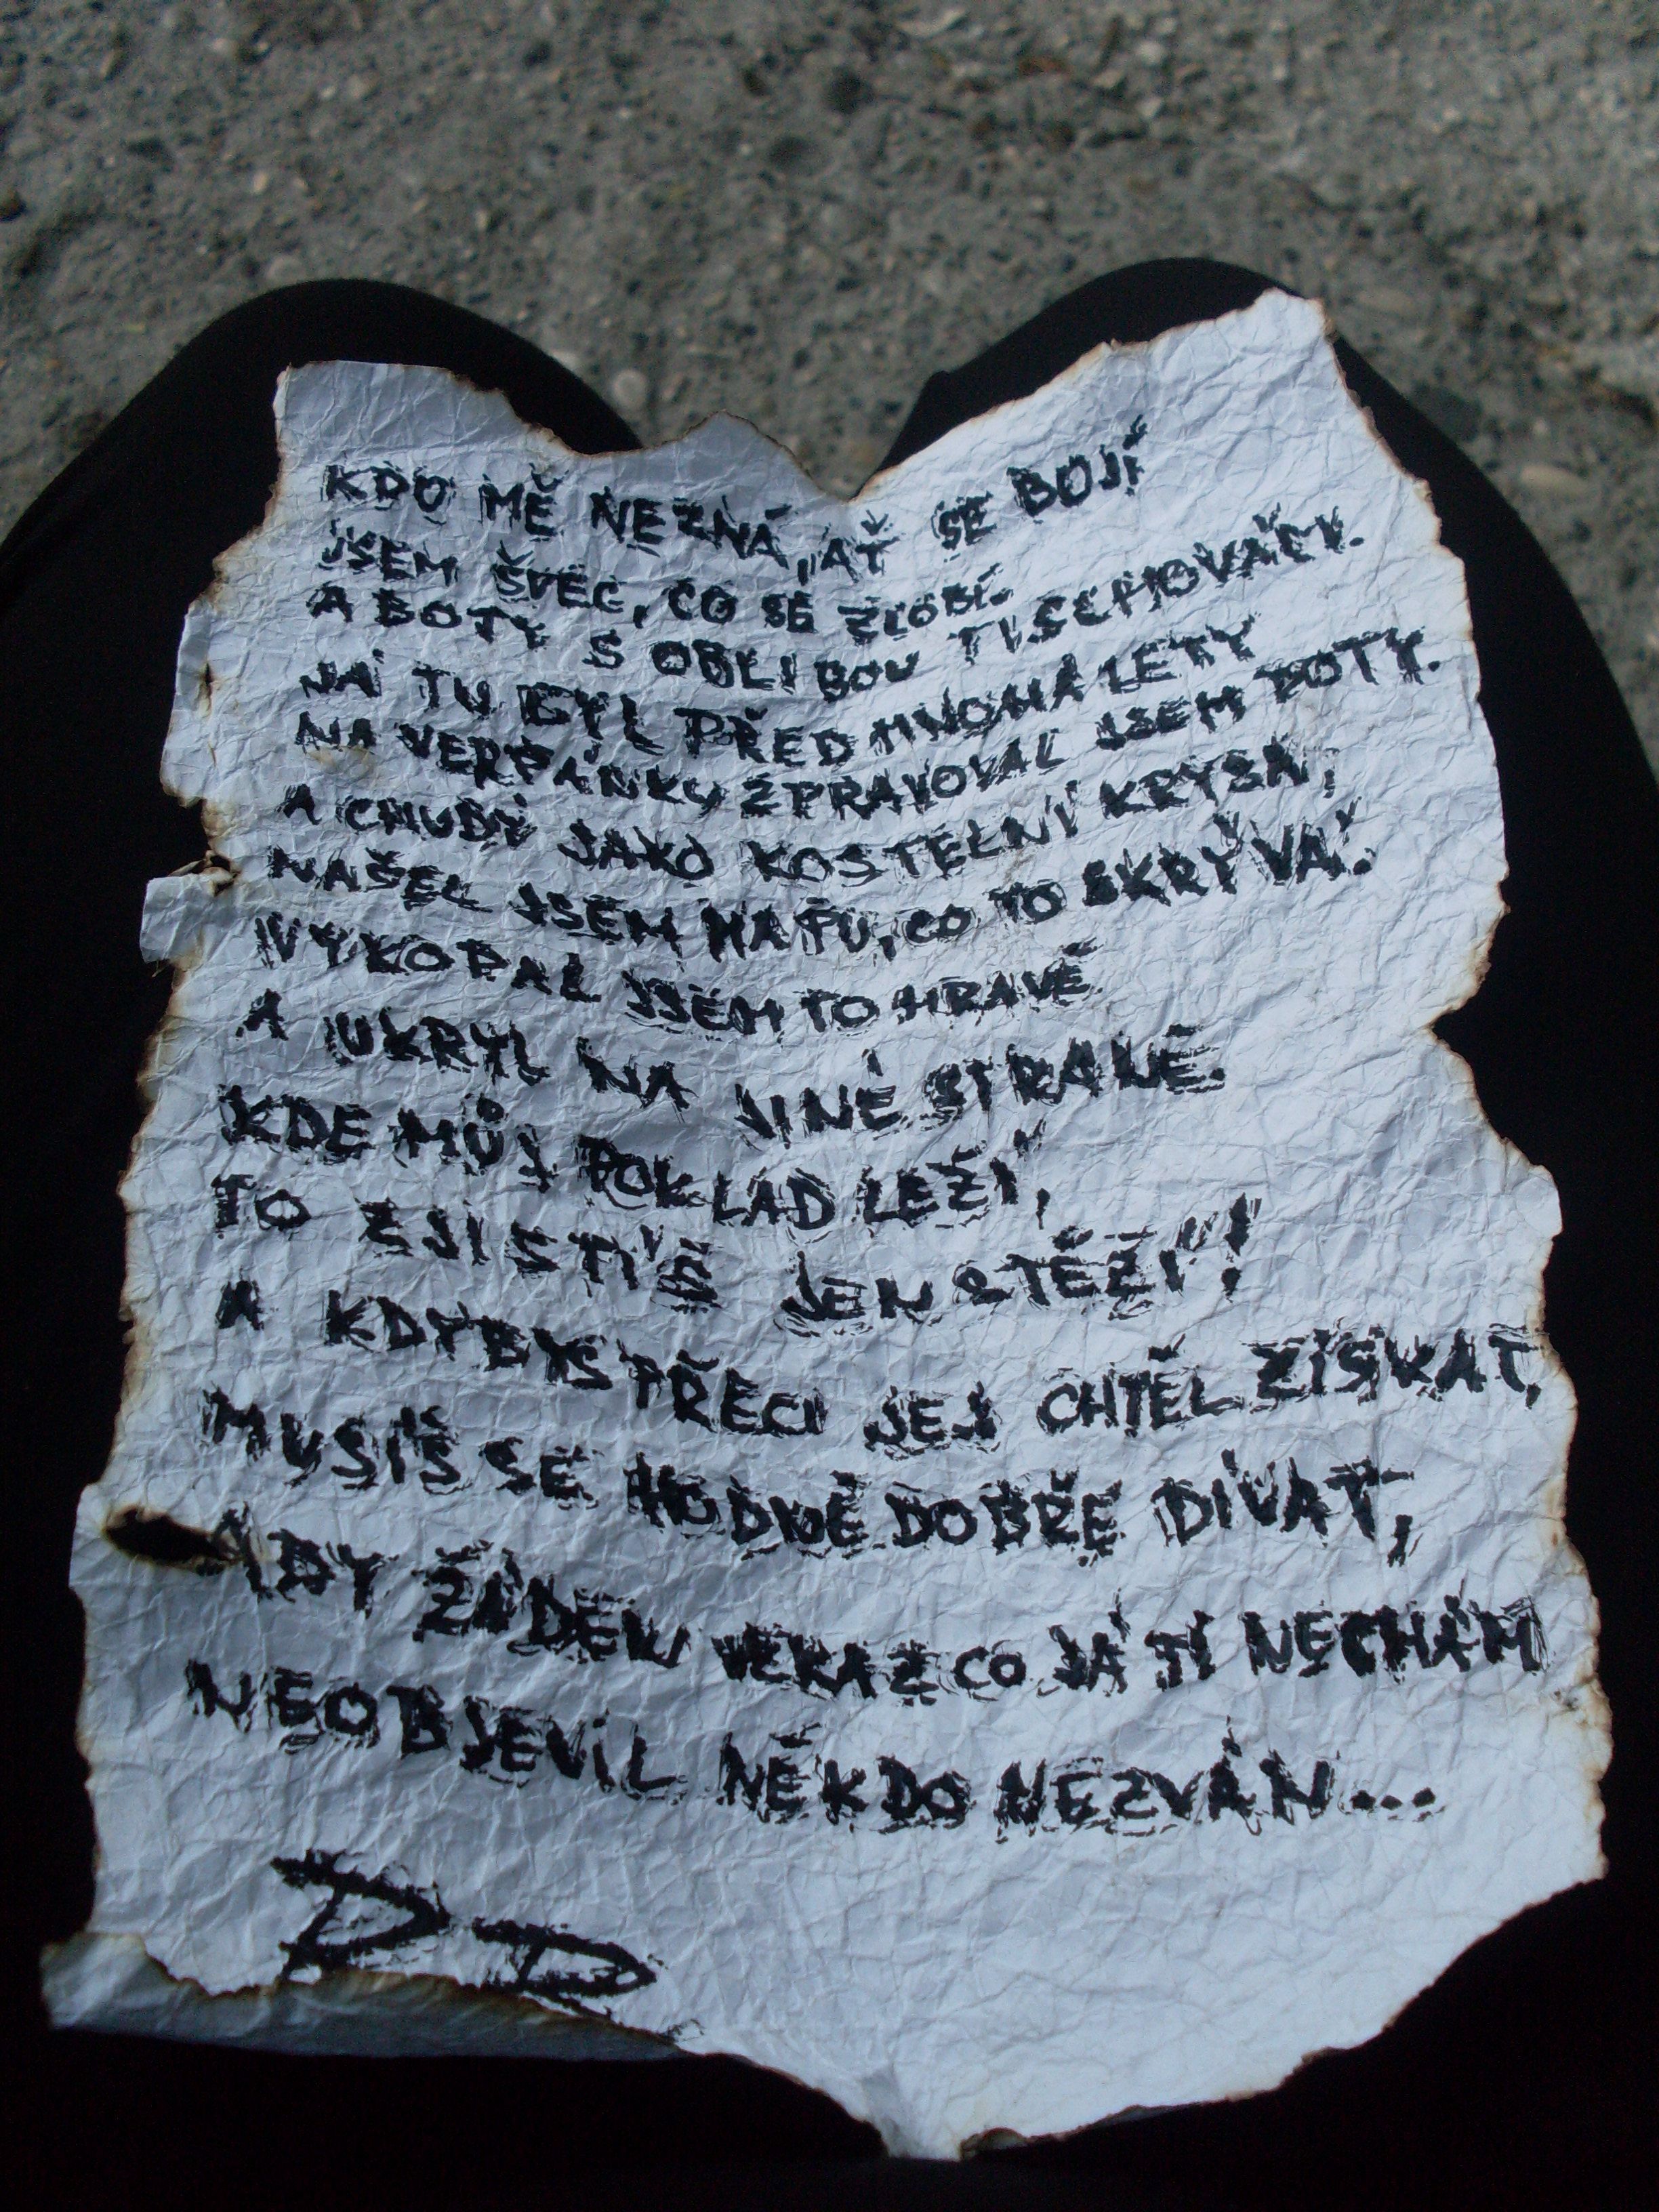 KDO MĚ NEZNÁ, AŤ SE BOJÍ
JSEM ŠVEC, CO SE ZLOBÍ
A BOTY S OBLIBOU TI SCHOVÁM.
JÁ TU BYL PŘED MNOHA LETY
NA VERPÁNKU ZPRAVOVAL JSEM BOTY.
A CHUDÝ JAKO KOSTELNÍ KRYSA,
NAŠEL JSEM MAPU, CO TO SKRÝVÁ.
VYKOPAL JSEM TO HRAVĚ
A UKRYL NA JINÉ STRANĚ.
KDE MŮJ POKLAD LEŽÍ,
TO ZJISTÍŠ JEN STĚŽÍ!
A KDYBYS PŘECI JEJ CHTĚL ZÍSKAT,
MUSÍŠ SE HODNĚ DOBŘE DÍVAT,
ABY ŽÁDEN VZKAZ CO JÁ TI NECHÁM
NEOBJEVIL NĚKDO NEZVÁN...